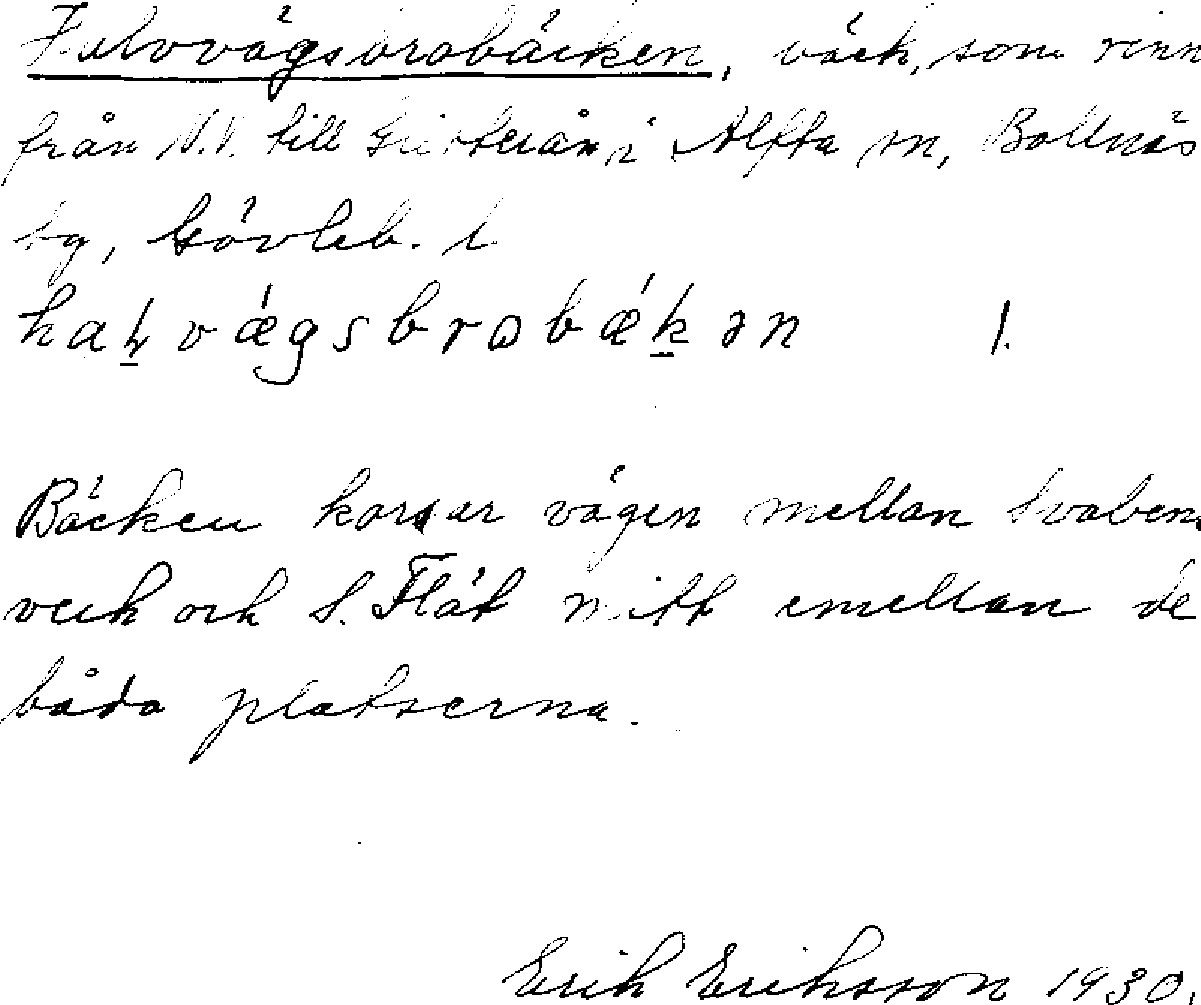 Halvvägsbrobäcken, bäck, som rinn
från N.V. till i Alfta sn, Bollnäs
tg, Gävleb. l.
Bäcken korsar vägen mellan Svaben
veck och S. Flät mitt emellan de
båda platserna.
Erik Eriksson 1930.